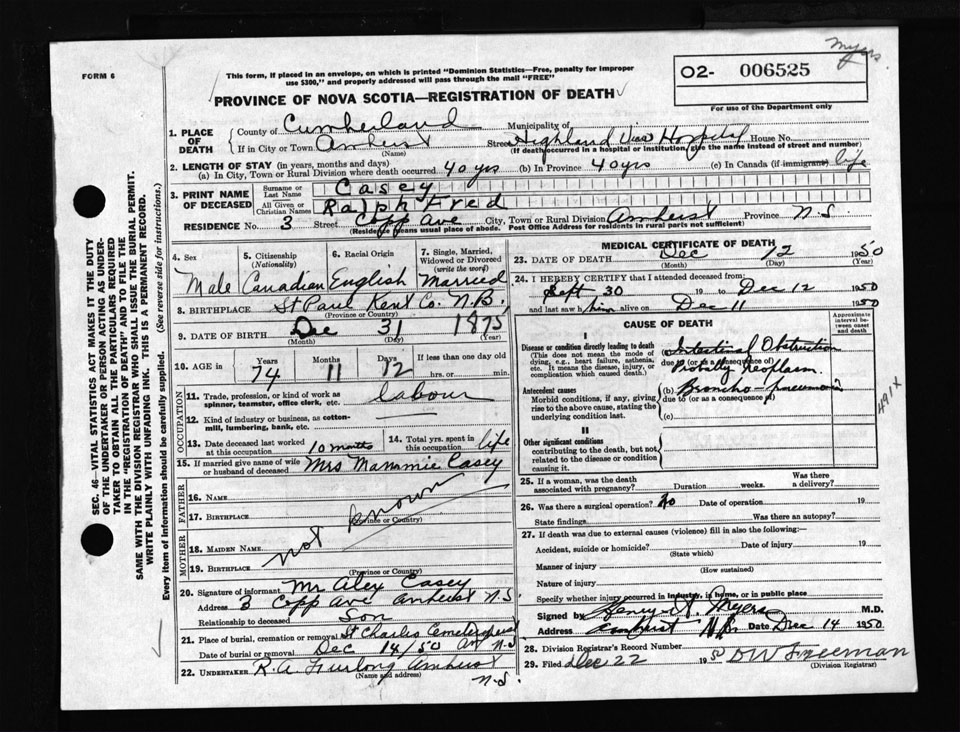 Myers
FORM 6
This form, if placed in an envelope, on which is printed "Dominion Statistics—Free, penalty for improper
use $300," and properly addressed will pass through the mail "FREE"
O2- 006525
For use of the Department only
PROVINCE OF NOVA SCOTIA—REGISTRATION OF DEATH
1. PLACE OF DEATH
County of Cumberland Municipality of
If in City or Town Amherst Street Highland View Hospital House No.
(Name) (If death occurred in a hospital or institution, give the name instead of street and number)
2. LENGTH OF STAY (in years, months and days)
(a) In City, Town or Rural Division where death occurred 40 yrs (b) In Province 40 yrs (c) In Canada (if immigrant) life
3. PRINT NAME OF DECEASED
Surname or Last Name Casey
All Given or Christian Names Ralph Fred
RESIDENCE No. 3 Street Copp Ave City, Town or Rural Division Amherst Province N.S.
(Residence means usual place of abode. Post Office Address for residents in rural parts not sufficient)
4. Sex Male
5. Citizenship (Nationality) Canadian
6. Racial Origin English
7. Single, Married, Widowed or Divorced (write the word) Married
8. BIRTHPLACE St Paul Kent Co. N.B.
(Province or Country)
9. DATE OF BIRTH Dec 31 1875
(Month) (Day) (Year)
10. AGE in Years 74 Months 11 Days 12 If less than one day old
hrs. or min.
OCCUPATION
11. Trade, profession, or kind of work as spinner, teamster, office clerk, etc. labour
12. Kind of industry or business, as cotton-mill, lumbering, bank, etc.
13. Date deceased last worked at this occupation 10 months
14. Total yrs. spent in this occupation life
15. If married give name of wife or husband of deceased Mrs Mammie Casey
FATHER
16. NAME
17. BIRTHPLACE
(Province or Country)
MOTHER
18. MAIDEN NAME
19. BIRTHPLACE
(Province or Country)
not known
20. Signature of informant Mr Alex Casey
Address 3 Copp Ave Amherst N.S.
Relationship to deceased Son
21. Place of burial, cremation or removal St Charles Cemetery
Date of burial or removal Dec 14/50 N.S
22. UNDERTAKER R.A Furlong Amherst
(Name and address)
N.S.
MEDICAL CERTIFICATE OF DEATH
23. DATE OF DEATH Dec 12 1950
(Month) (Day) (Year)
24. I HEREBY CERTIFY that I attended deceased from:
Sept 30 19 to Dec 12 1950
and last saw him alive on Dec 11 1950
CAUSE OF DEATH
Approximate interval between onset and death
I
Disease or condition directly leading to death
(This does not mean the mode of dying, e.g., heart failure, asthenia, etc. It means the disease, injury, or complication which caused death.)
Intestinal Obstruction
due to (or as a consequence of)
Probably neoplasm
Antecedent causes
Morbid conditions, if any, giving rise to the above cause, stating the underlying condition last.
(b) Broncho-pneumonia
due to (or as a consequence of)
(c)
491X
II
Other significant conditions
contributing to the death, but not related to the disease or condition causing it.
25. If a woman, was the death associated with pregnancy? Duration weeks. Was there a delivery?
26. Was there a surgical operation? No Date of operation 19
State findings Was there an autopsy?
27. If death was due to external causes (violence) fill in also the following:—
Accident, suicide or homicide? Date of injury 19
(State which)
Manner of injury
(How sustained)
Nature of injury
Specify whether injury occurred in industry, in home, or in public place
Signed by Henry Myers M.D.
Address Amherst Date Dec 14 1950
28. Division Registrar's Record Number
29. Filed Dec 22 1950 DW Freeman
(Division Registrar)
SEC. 46—VITAL STATISTICS ACT MAKES IT THE DUTY
OF THE UNDERTAKER OR PERSON ACTING AS UNDER-
TAKER TO OBTAIN ALL THE PARTICULARS REQUIRED
IN THE "REGISTRATION OF DEATH" AND TO FILE THE
SAME WITH THE DIVISION REGISTRAR WHO SHALL ISSUE THE BURIAL PERMIT.
WRITE PLAINLY WITH UNFADING INK. THIS IS A PERMANENT RECORD.
Every item of information should be carefully supplied. (See reverse side for instructions.)